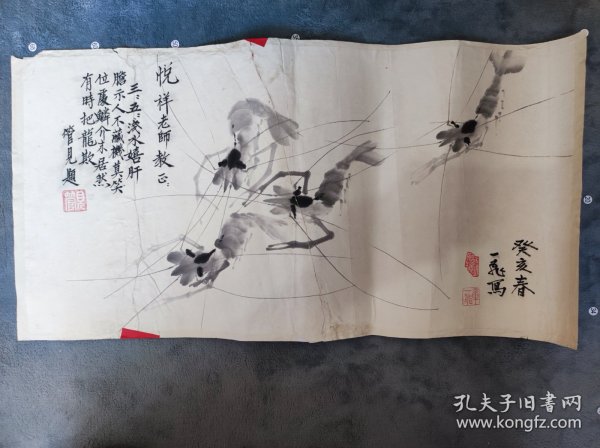 悦祥老師教正:
三三五五浅水嬉肝
膽示人不藏機莫笑
位處鱗介末居然
有時把龍欺
管見題
癸亥春
一飛寫
孔夫子旧书网
www.kongfz.com